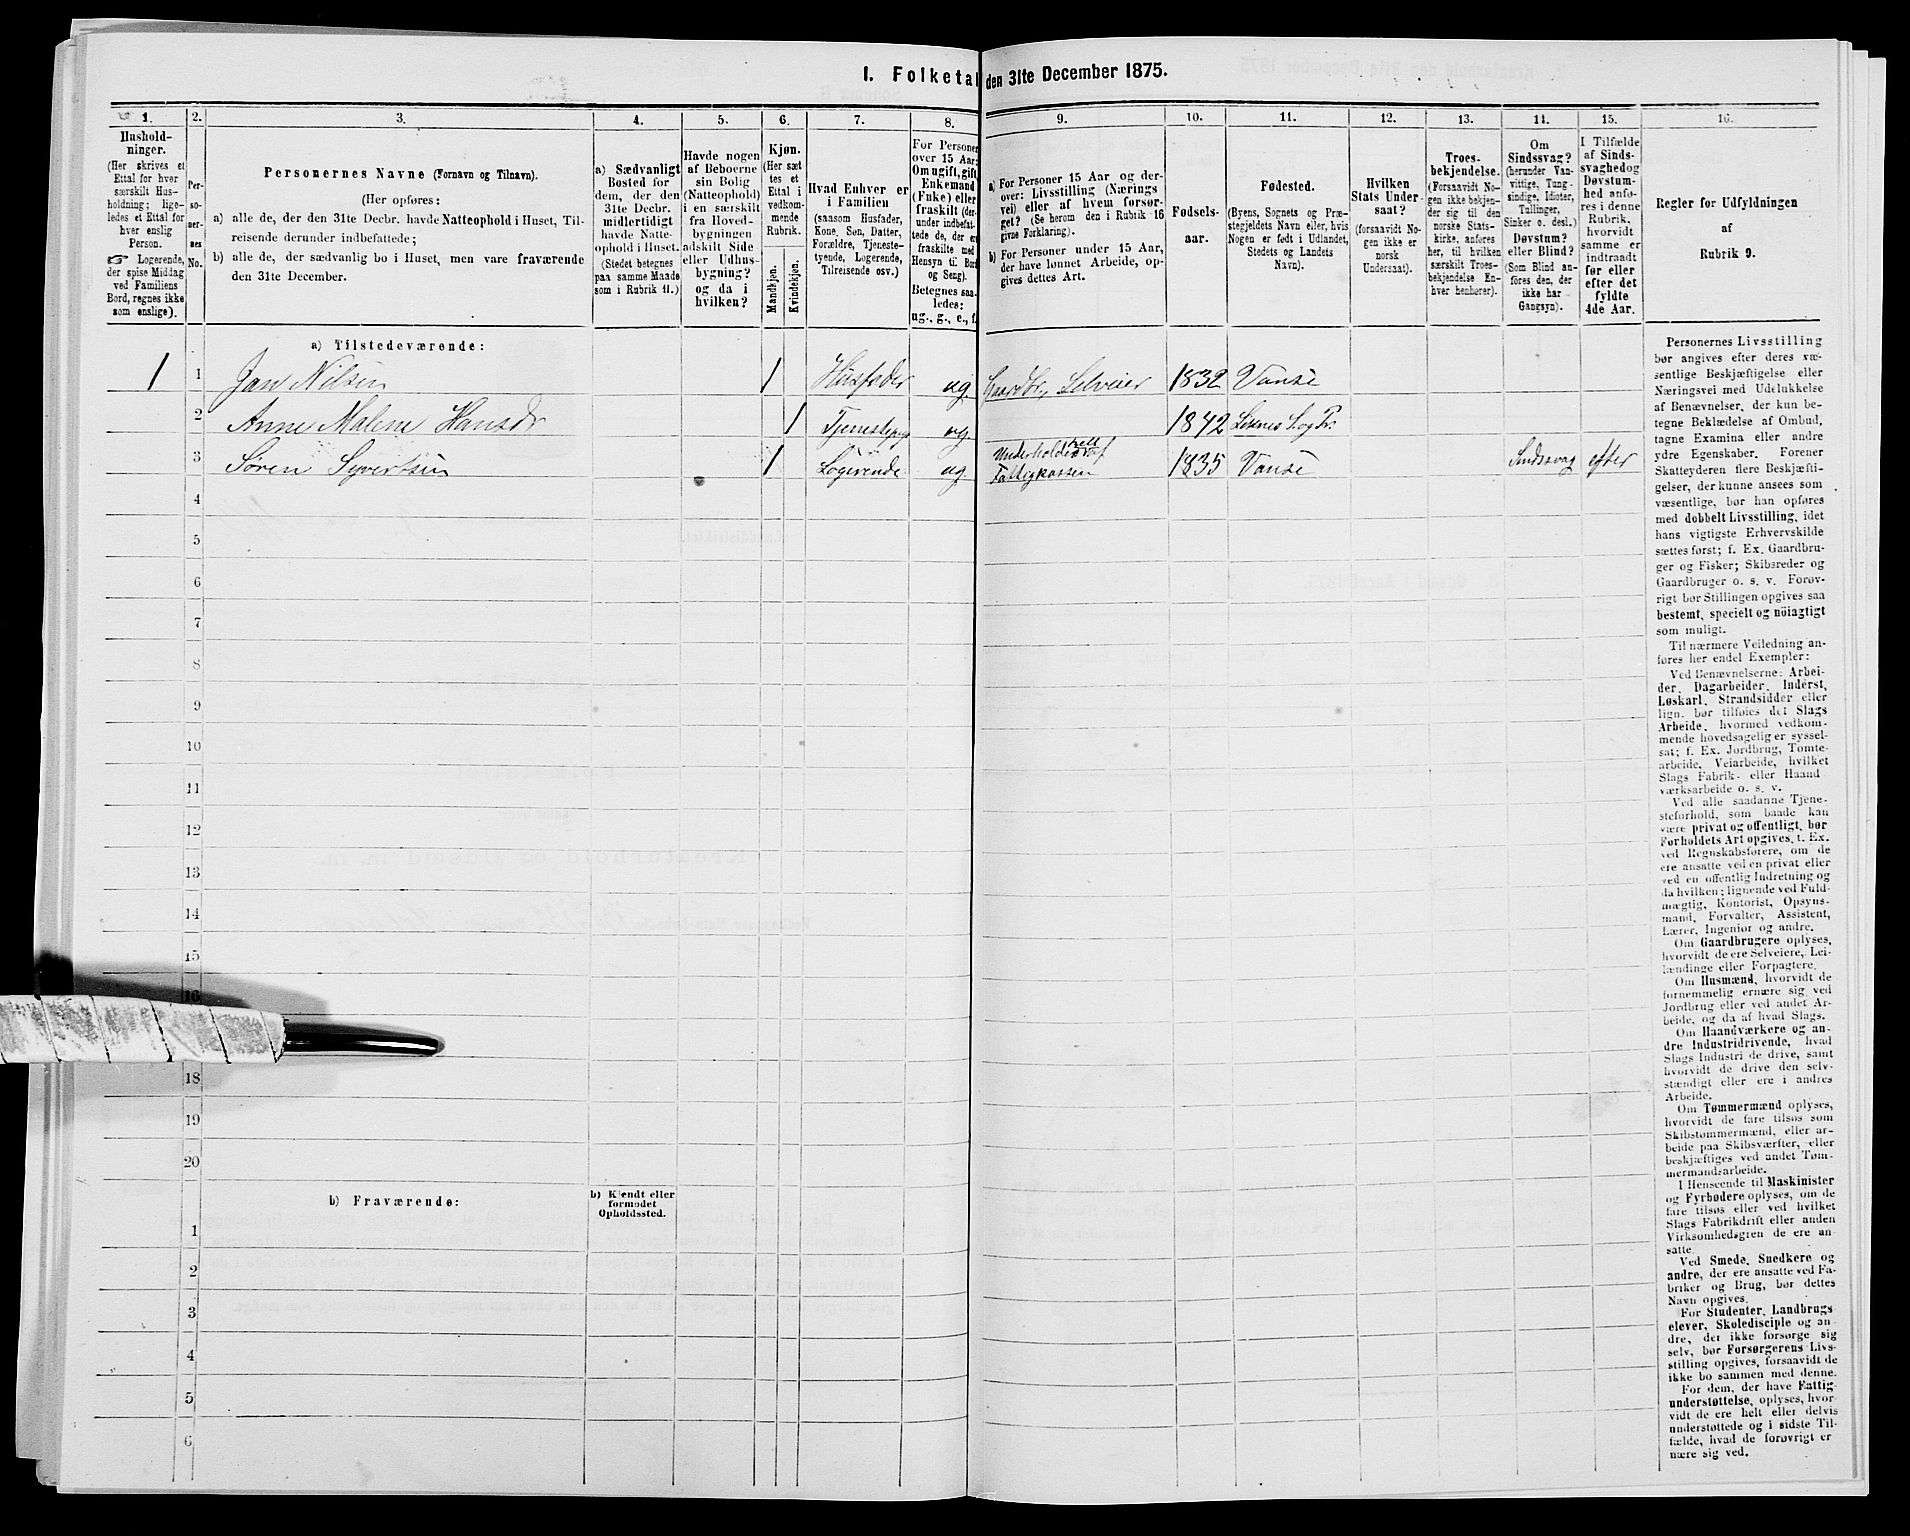 I. Folketal den 31te December 1875.
1. 2. 3. 4. 5. 6. 7. 8. 9. 10. 11. 12. 13. 14. 15. 16.
Husholdninger.
(Her skrives et
Ettal for hver
særskilt Husholdning;
ligeledes et Ettal for
hver enslig
Person.
☞ Logerende,
der spise Middag
ved Familiens
Bord, regnes ikke
som enslige).
Personernes
No.
Personernes Navne (Fornavn og Tilnavn).
(Her opføres:
a) alle de, der den 31te Decbr. havde Natteophold i Huset, Tilreisende
derunder indbefattede;
b) alle de, der sædvanlig bo i Huset, men vare fraværende
den 31te December.
a) Sædvanligt
Bosted for
dem, der den
31te Decbr.
midlertidigt
havde Natteophold
i Huset.
(Stedet betegnes
paa samme Maade
som i Rubrik 11.)
Havde nogen
af Beboerne
sin Bolig
(Natteophold)
i en særskilt
fra Hovedbygningen
adskilt Side
eller Udhusbygning?
og da i
hvilken?
Kjøn.
(Her sættes
et
Ettal i
vedkommende
Rubrik.
Mandkjøn.
Kvindekjøn.
Hvad Enhver er
i Familien
(saasom Husfader,
Kone, Søn, Datter,
Forældre, Tjenestetyende,
Logerende,
Tilreisende osv.)
For Personer
over 15 Aar:
Om ugift, gift,
Enkemand
(Enke) eller
fraskilt (derunder
indbefattede, de, der er
fraskilte med
Hensyn til Bord
og Seng).
Betegnes saaledes:
ug., g., e., f.
a) For Personer 15 Aar og derover:
Livsstilling (Næringsvei)
eller af hvem forsørget?
(Se herom den i Rubrik 16
givne Forklaring).
b) For Personer under 15 Aar,
der have lønnet Arbeide, opgives
dettes Art.
Fødselsaar.
Fødested.
(Byens, Sognets og Præstegjeldets
Navn eller, hvis
Nogen er født i Udlandet,
Stedets og Landets
Navn).
Hvilken
Stats Undersaat?
(forsaavidt Nogen
ikke er
norsk
Undersaat).
Troesbekjendelse.
(Forsaavidt Nogen
ikke bekjender
sig til den
norske Statskirke,
anføres
her, til hvilken
særskilt Troesbekjendelse
Enhver
henhører).
Om
Sindssvag?
(herunder Vanvittige,
Tungsindige,
Idioter,
Tullinger,
Sinker o. desl.)
Døvstum?
eller Blind?
(Som Blind anføres
den, der
ikke har
Gangsyn).
I Tilfælde
af Sindssvaghed
og
Døvstumhed
anføres
i denne
Rubrik,
hvorvidt
samme er
indtraadt
før eller
efter det
fyldte
4de Aar.
Regler for Udfyldningen
af
Rubrik 9.
a) Tilstedeværende:
1 1 Jan Nilsen 1 Husfader ug. Gaardbr, Selveier 1832 Vanse
2 Anne Malene Hansdr 1 Tjenestepige ug. 1842 Liknes S. og Pr.
3 Søren Syvertsen 1 Logerende ug. Underholdes helt af Fattigkassen 1835 Vanse Sindssvag efter
4
5
6
7
8
9
10
11
12
13
14
15
16
18
19
20
b) Fraværende:
b) Kjendt eller
formodet
Opholdssted.
1
2
3
4
5
6
Personernes Livsstilling
bør angives efter deres væsentlige
Beskjæftigelse eller
Næringsvei med Udelukkelse
af Benævnelser, der kun betegne
Beklædelse af Ombud,
tagne Examina eller andre
ydre Egenskaber. Forener
Skatteyderen flere Beskjæftigelser,
der kunne ansees som
væsentlige, bør han opføres
med dobbelt Livsstilling, idet
hans vigtigste Erhvervskilde
sættes først; f. Ex. Gaardbruger
og Fisker; Skibsreder og
Gaardbruger o. s. v. Forøvrigt
bør Stillingen opgives saa
bestemt, specielt og nöiagtigt
som muligt.
Til nærmere Veiledning anføres
her endel Exempler:
Ved Benævnelserne: Arbeider,
Dagarbeider, Inderst,
Løskarl, Strandsidder eller
lign. bør tilføies det Slags
Arbeide, hvormed vedkommende
hovedsagelig er sysselsat;
f. Ex. Jordbrug, Tomtearbeide,
Veiarbeide, hvilket
Slags Fabrik- eller Haandværksarbeide
o. s. v.
Ved alle saadanne Tjenesteforhold,
som baade kan
være privat og offentligt, bør
Forholdets Art opgives, t. Ex.
ved Regnskabsførere, om de
ere ansatte ved en privat eller
ved en offentlig Indretning og
da hvilken; lignende ved Fuldmægtig,
Kontorist, Opsynsmand,
Forvalter, Assistent,
Lærer, Ingeniør og andre.
Om Gaardbrugere oplyses,
hvorvidt de ere Selveiere, Leilændinge
eller Forpagtere.
Om Husmænd, hvorvidt de
fornemmelig ernære sig ved
Jordbrug eller ved andet Arbeide,
og da af hvad Slags.
Om Haandværkere og andre
Industridrivende, hvad
Slags Industri de drive, samt
hvorvidt de drive den selvstændigt
eller ere i andres
Arbeide.
Om Tømmermænd oplyses,
hvorvidt de fare tilsøs som
Skibstømmermænd, eller arbeide
paa Skibsværfter, eller
beskjæftiges ved andet Tømmermandsarbeide.
I Henseende til Maskinister
og Fyrbødere oplyses, om de
fare tilsøs eller ved hvilket
Slags Fabrikdrift eller anden
Virksomhedsgren de ere ansatte.
Ved Smede, Snedkere og
andre, der ere ansatte ved Fabriker
og Brug, bør dettes
Navn opgives.
For Studenter, Landbrugselever,
Skoledisciple og andre,
der ikke forsørge sig
selv, bør Forsørgerens Livsstilling
opgives, forsaavidt de
ikke bo sammen med denne.
For dem, der have Fattigunderstøttelse,
oplyses, hvorvidt
de ere helt eller delvis
understøttede og i sidste Tilfælde,
hvad de forøvrigt ernære
sig ved.